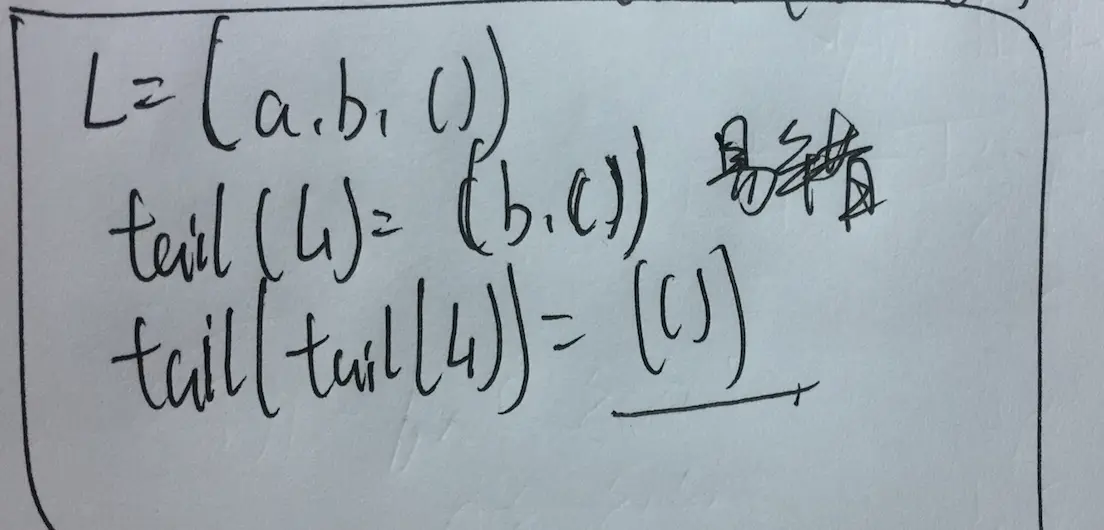 L=(a,b,())
tail(L)=(b,()) 易错
tail(tail(L))=(())